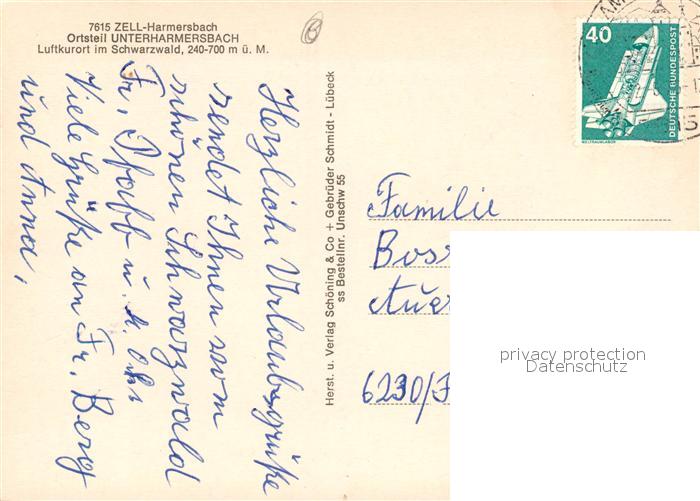 7615 ZELL-Harmersbach
Ortsteil UNTERHARMERSBACH
Luftkurort im Schwarzwald, 240-700 m ü. M.
Herzliche Urlaubsgrüße
sendet Ihnen vom
schönen Schwarzwald
Fr. Pfaff u.
Viele Grüße an Fr. Berg
und Anna,
Herst. u. Verlag Schöning & Co + Gebrüder Schmidt - Lübeck
ss Bestellnr. Unschw 55
40
DEUTSCHE BUNDESPOST
WELTRAUMLABOR
Familie
Boss
Auer
6230/F
privacy protection
Datenschutz